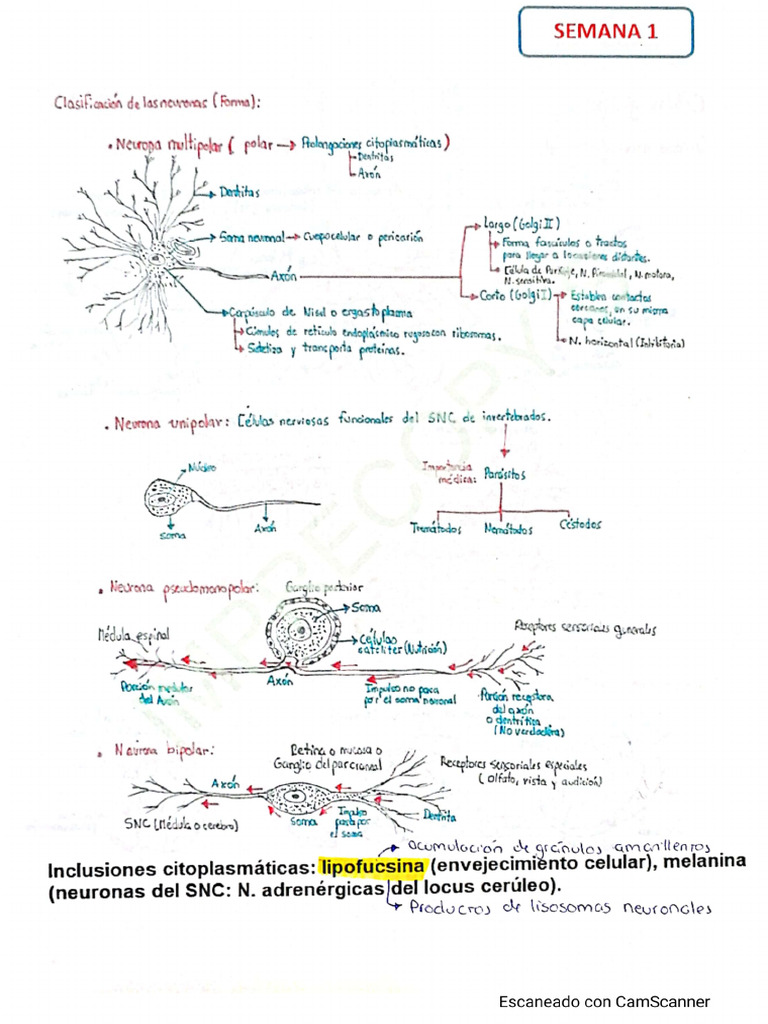 SEMANA 1
Clasificación de las neuronas (Forma):
• Neurona multipolar ( polar → Prolongaciones citoplasmáticas)
Dentritas
Axón
Dentritas
Soma neuronal → Cuerpo celular o pericarión
Axón
Largo (Golgi II)
Forma fascículos o tractos
para llegar a locaciones distantes.
Célula de Purkinje, N. Piramidal, N. motora,
N. sensitiva.
Corto (Golgi I)
Establece contactos
cercanos, en su misma
capa celular.
N. horizontal (Inhibitoria)
Corpúsculo de Nissl o ergastoplasma
Cúmulos de retículo endoplásmico rugoso con ribosomas.
Sintetiza y transporta proteínas.
• Neurona unipolar: Células nerviosas funcionales del SNC de invertebrados.
Importancia
médica:
Parásitos
Tremátodos
Nemátodos
Céstodos
Núcleo
Soma
Axón
• Neurona pseudomonopolar:
Ganglio posterior
Soma
Células
satéliter (Nutrición)
Médula espinal
Receptores sensoriales generales
Axón
Porción medular
del Axón
Impulso no pasa
por el soma neuronal
Porción receptora
del axón
o dentrítica
(No verdadera)
• Neurona bipolar:
Retina o mucosa o
Ganglio del par craneal
Receptores sensoriales especiales
( Olfato, vista y audición)
Axón
SNC (Médula o cerebro)
Soma
Impulso
pasa por
el soma
Dentrita
Acumulación de gránulos amarillentos
Inclusiones citoplasmáticas: lipofucsina (envejecimiento celular), melanina
(neuronas del SNC: N. adrenérgicas del locus cerúleo).
Productos de lisosomas neuronales
Escaneado con CamScanner